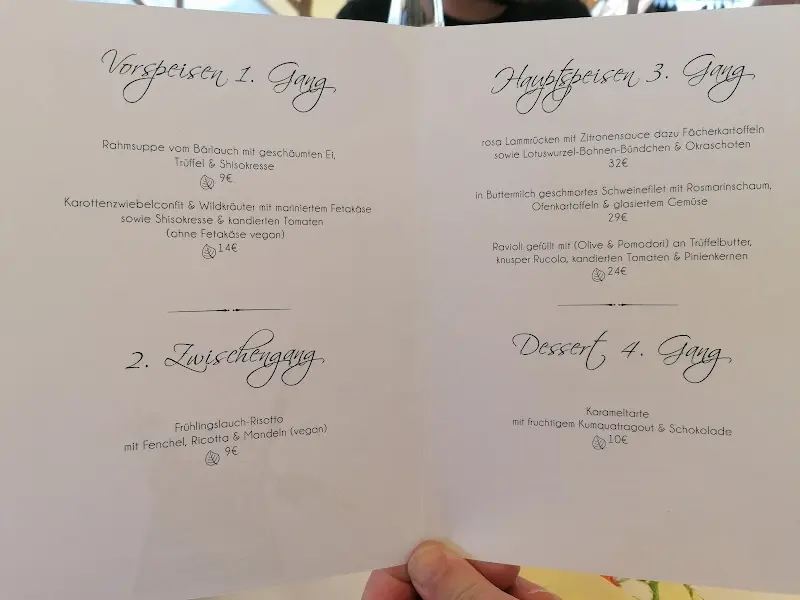 Vorspeisen 1. Gang
Rahmsuppe vom Bärlauch mit geschäumten Ei,
Trüffel & Shisokresse
9€
Karottenzwiebelconfit & Wildkräuter mit mariniertem Fetakäse
sowie Shisokresse & kandierten Tomaten
(ohne Fetakäse vegan)
14€
2. Zwischengang
Frühlingslauch-Risotto
mit Fenchel, Ricotta & Mandeln (vegan)
9€
Hauptspeisen 3. Gang
rosa Lammrücken mit Zitronensauce dazu Fächerkartoffeln
sowie Lotuswurzel-Bohnen-Bündchen & Okraschoten
32€
in Buttermilch geschmortes Schweinefilet mit Rosmarinschaum,
Ofenkartoffeln & glasiertem Gemüse
29€
Ravioli gefüllt mit (Olive & Pomodori) an Trüffelbutter,
knusper Rucola, kandierten Tomaten & Pinienkernen
24€
Dessert 4. Gang
Karameltarte
mit fruchtigem Kumquatragout & Schokolade
10€